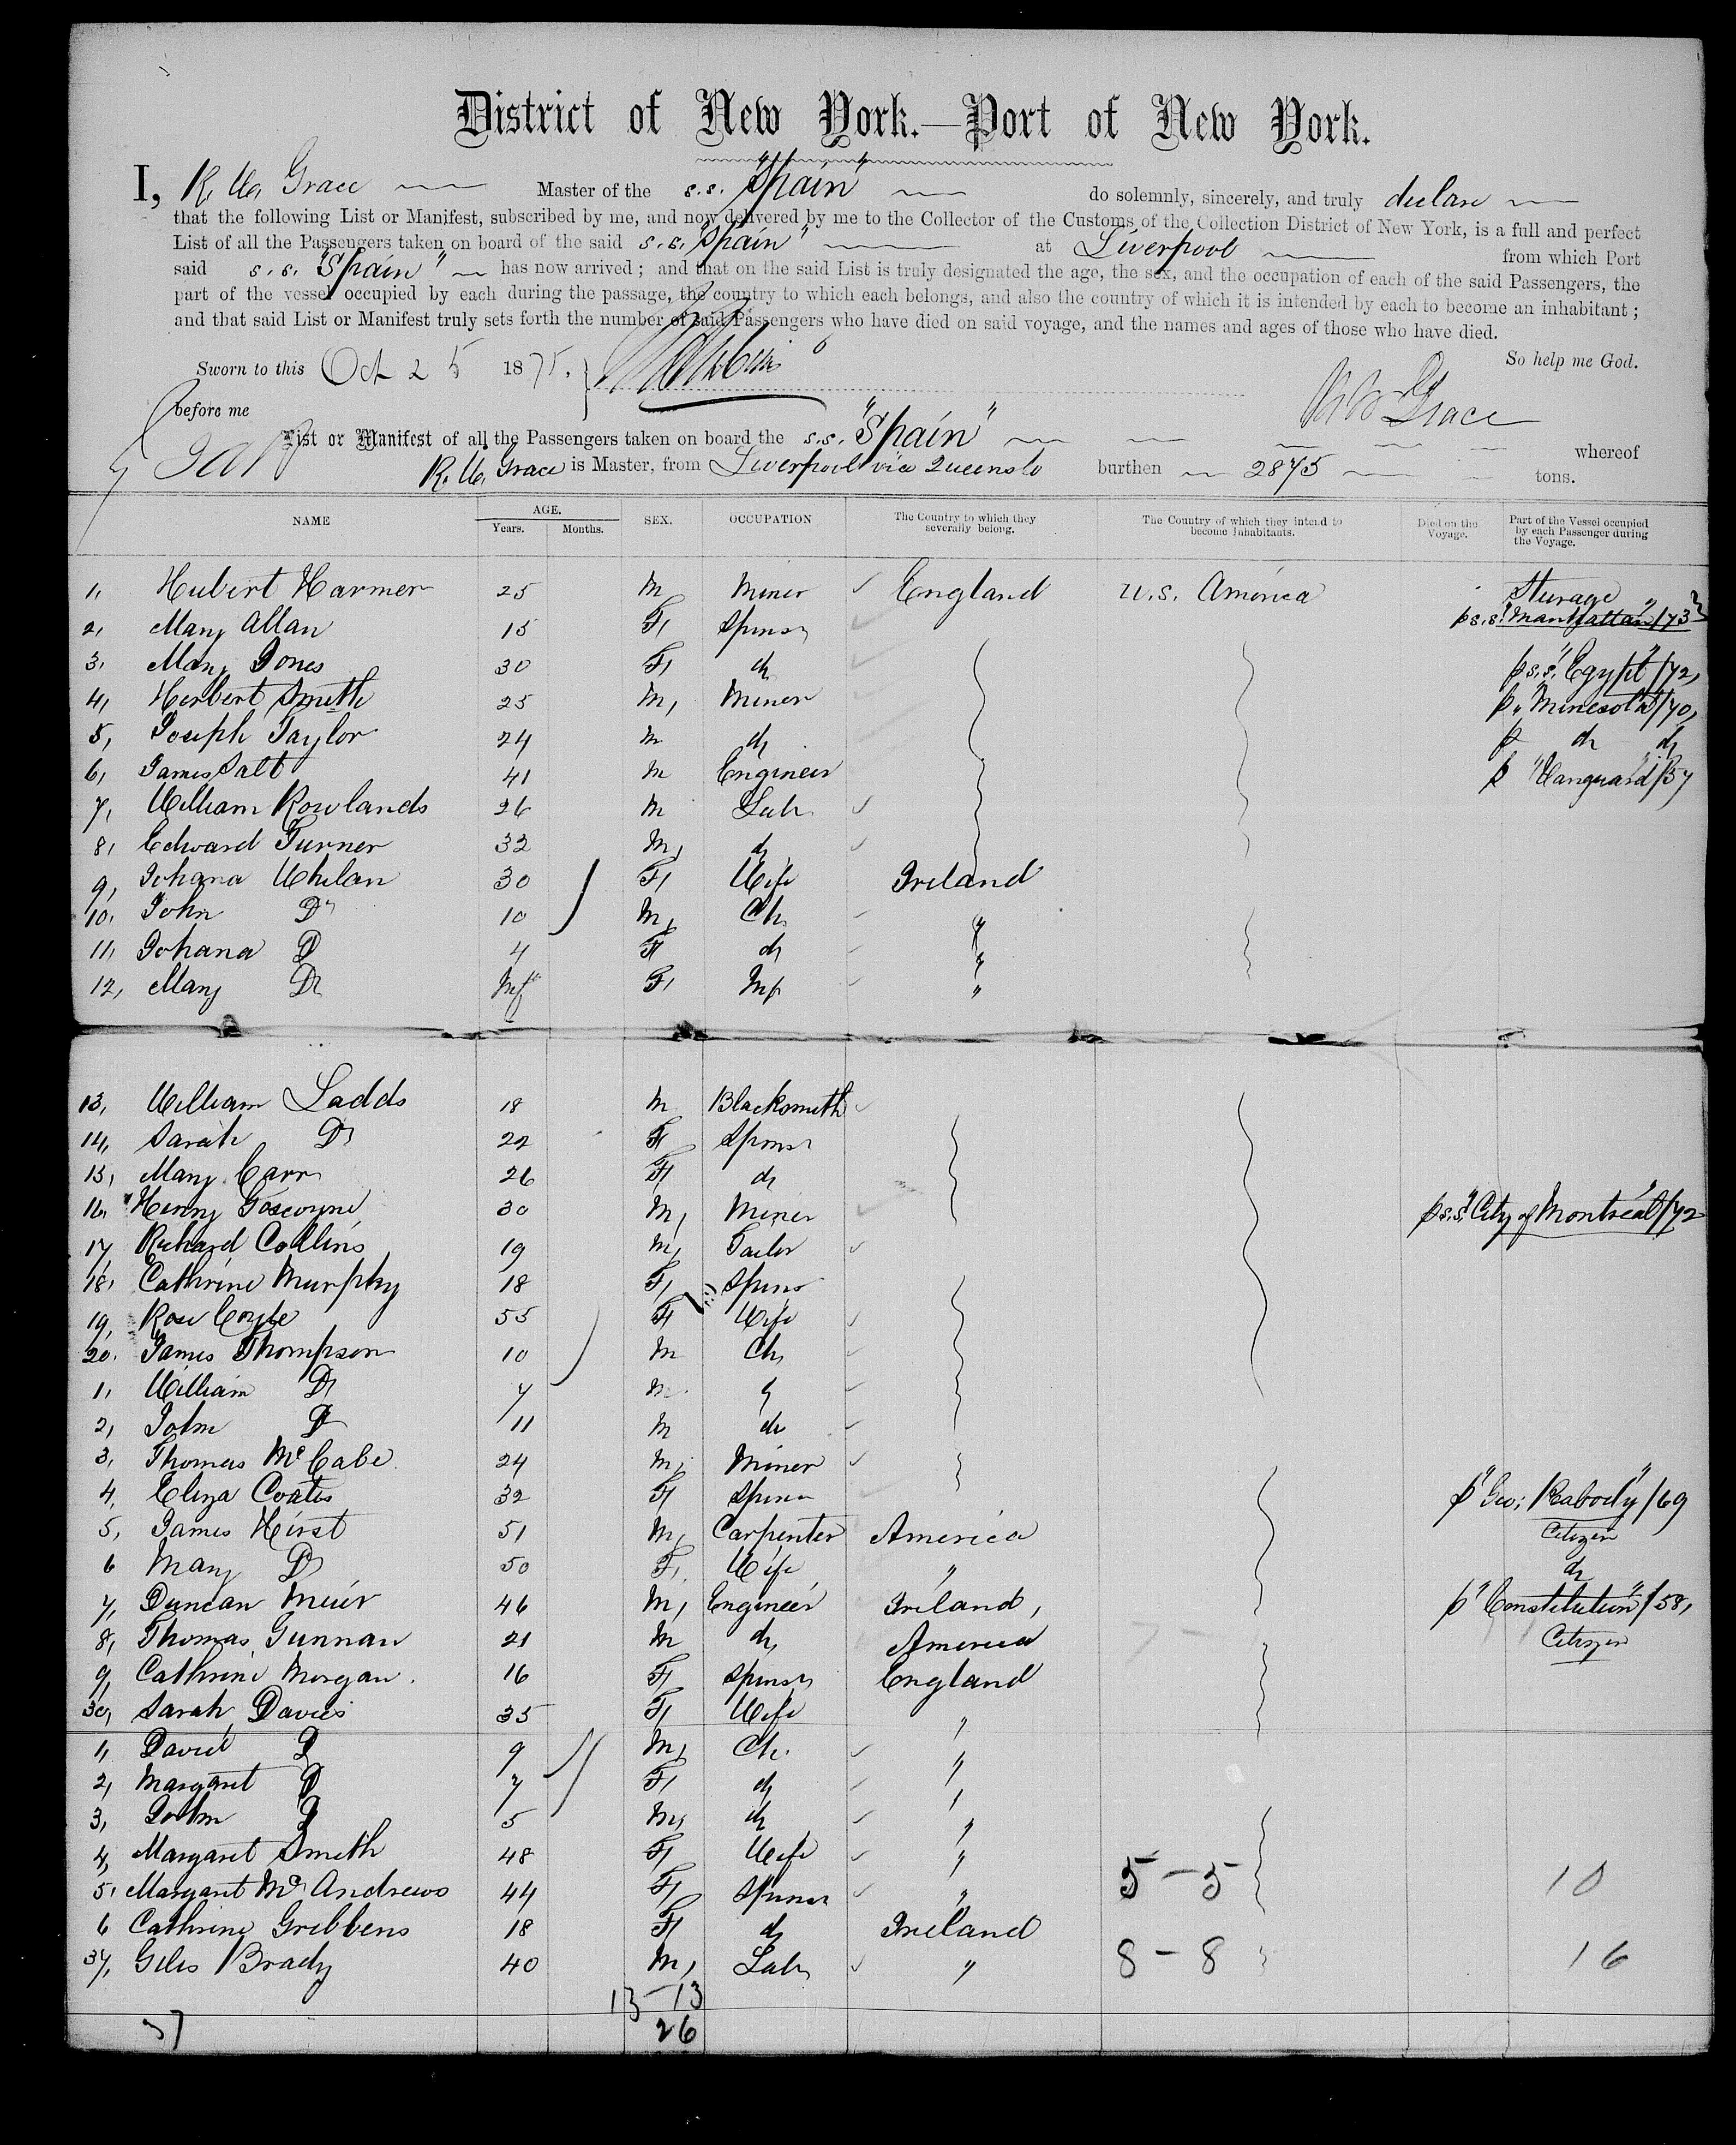 District of New York.—Port of New York.
I, R. W. Grace Master of the s.s. "Spain" do solemnly, sincerely, and truly declare
that the following List or Manifest, subscribed by me, and now delivered by me to the Collector of the Customs of the Collection District of New York, is a full and perfect
List of all the Passengers taken on board of the said s.s. "Spain" at Liverpool from which Port
said s.s. "Spain" has now arrived; and that on the said List is truly designated the age, the sex, and the occupation of each of the said Passengers, the
part of the vessel occupied by each during the passage, the country to which each belongs, and also the country of which it is intended by each to become an inhabitant;
and that said List or Manifest truly sets forth the number of said Passengers who have died on said voyage, and the names and ages of those who have died.
Sworn to this Oct 25 1875. So help me God.
before me R W Grace
List or Manifest of all the Passengers taken on board the s.s. "Spain" whereof
R. W. Grace is Master, from Liverpool via Queensto burthen 2875 tons.
NAME AGE. Years. Months. SEX. OCCUPATION The Country to which they severally belong. The Country of which they intend to become Inhabitants. Died on the Voyage. Part of the Vessel occupied by each Passenger during the Voyage.
1, Hubert Harmer 25 M Miner England U.S. America Sturage
2, Mary Allan 15 F, Spinsr p s.s. "Manhattan"/73
3, Mary Jones 30 F, do p s.s. "Egypt"/72,
4, Herbert Smith 25 M, Miner p. "Minesota"/70,
5, Joseph Taylor 24 M do p do do
6, James Salt 41 M Engineer p "Vanguard"/57
7, William Rowlands 26 M Labr
8, Edward Turner 32 M, do
9, Johana Whelan 30 F, Wife Ireland
10, John Do 10 M, Ch, "
11, Johana D 4 F do "
12, Mary Do Inf F, Inf "
13, William Ladds 18 M Blacksmith
14, Sarah Do 22 F Spinsr
15, Mary Carr 26 F, do
16, Henry Goscoyne 30 M, Miner p s.s. "City of Montreal"/72
17, Richard Collins 19 M, Tailor
18, Cathrine Murphy 18 F, Spins
19, Rose Coyle 55 F Wife
20, James Thompson 10 M Ch,
1, William Do 7 M "
2, John D 11 M do
3, Thomas McCabe 24 M, Miner
4, Eliza Coates 32 F Spinsr p "Geo: Peabody"/69
5, James Hirst 51 M, Carpenter America Citizen
6 Mary Do 50 F, Wife " do
7, Duncan Muir 46 M, Engineer Ireland, p "Constitution"/58,
8, Thomas Gunnan 21 M do America Citizen
9, Cathrine Morgan 16 F, Spinsr England
30, Sarah Davies 35 F, Wife "
1, David D 9 M, Ch. "
2, Margaret D 7 F, do "
3, John D 5 M, do "
4, Margaret Smith 48 F, Wife "
5, Margaret McAndrews 44 F, Spinsr " 5-5 10
6 Cathrine Gribbens 18 F do Ireland
37, Giles Brady 40 M, Labr " 8-8 16
13-13
37 26